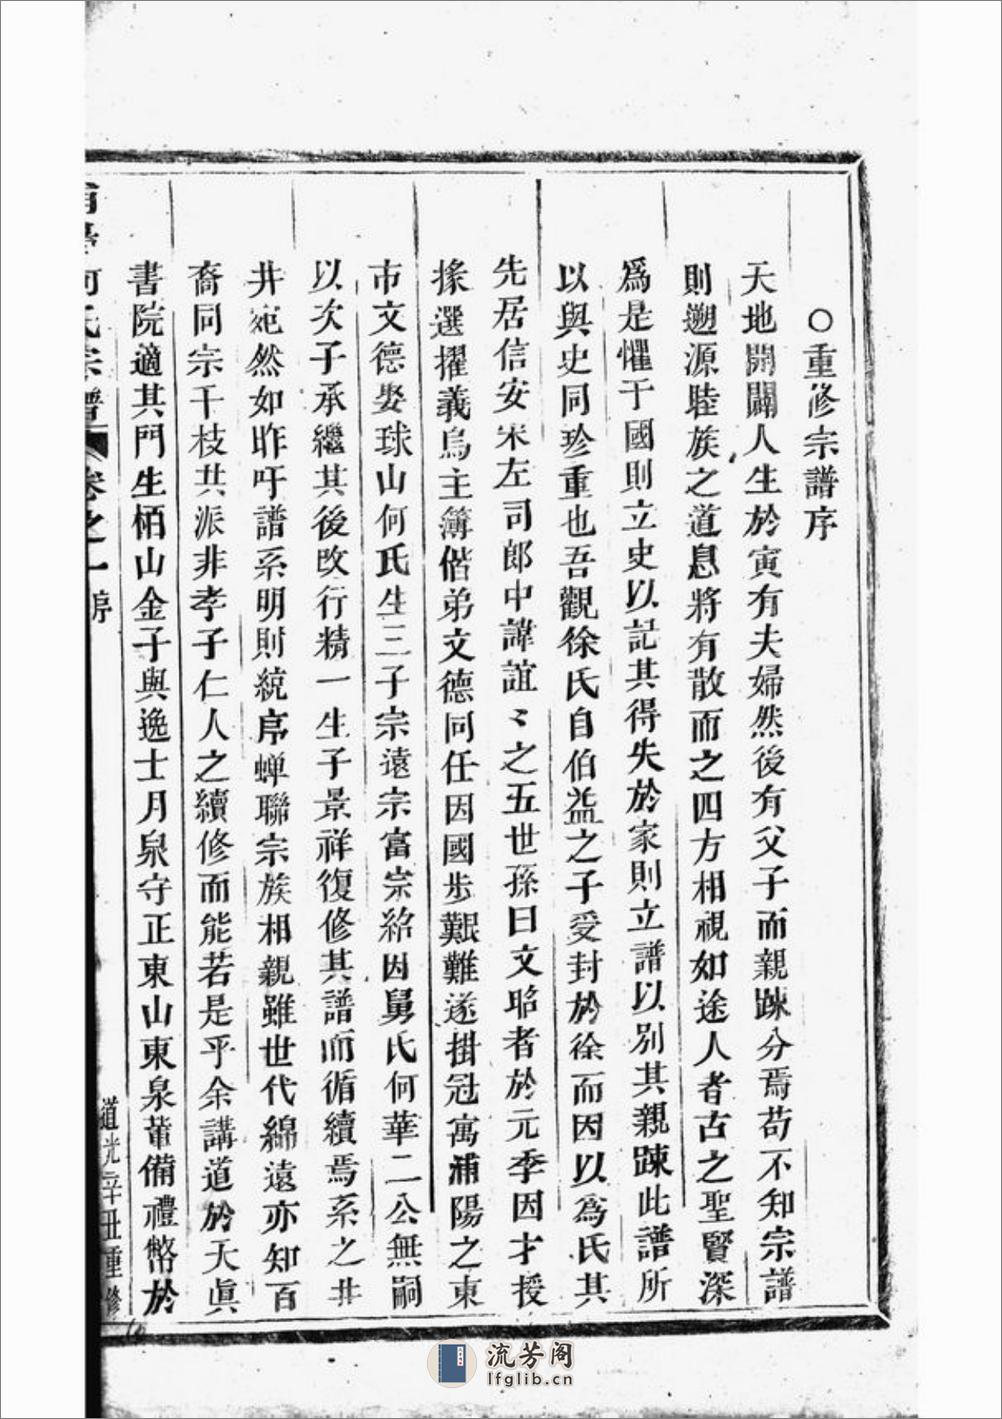 ○重修宗譜序
天地開闢人生於寅有夫婦然後有父子而親踈分焉苟不知宗譜
則遡源睦族之道息將有散而之四方相視如途人者古之聖賢深
爲是懼于國則立史以記其得失於家則立譜以別其親踈此譜所
以與史同珍重也吾觀徐氏自伯益之子受封於徐而因以爲氏其
先居信安宋左司郎中諱誼〻之五世孫曰文昭者於元季因才授
掾選擢義烏主簿偕弟文德同任因國步艱難遂掛冠寓浦陽之東
市文德娶球山何氏生三子宗遠宗富宗紹因舅氏何華二公無嗣
以次子承繼其後改行精一生子景祥復修其譜而循續焉系之井
井宛然如昨吁譜系明則統序蟬聯宗族相親雖世代綿遠亦知百
裔同宗千枝共派非孝子仁人之續修而能若是乎余講道於天眞
書院適其門生栢山金子與逸士月泉守正東山東泉輩備禮幣於
何氏宗譜 卷之一 序
道光辛丑重修
流芳阁
lfglib.cn